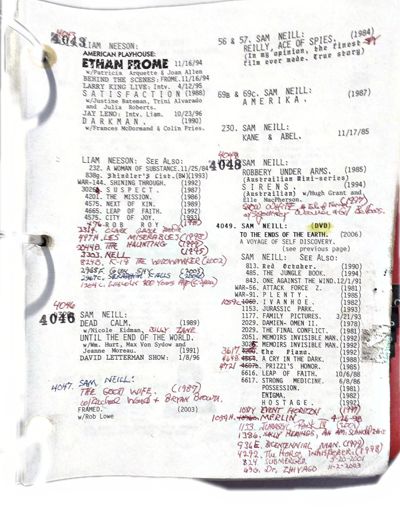 4043
4043 LIAM NEESON:
AMERICAN PLAYHOUSE:
ETHAN FROME 11/16/94
w/Patricia Arquette & Joan Allen
BEHIND THE SCENES: FROME. 11/16/94
LARRY KING LIVE: Intv. 4/12/95
S A T I S F A C T I O N (1988)
w/Justine Bateman, Trini Alvarado
and Julia Roberts.
JAY LENO: Liam. Intv. 10/23/96
D A R K M A N. (1990)
w/Frances McDormand & Colin Fries.
LIAM NEESON: SEE ALSO:
232. A WOMAN OF SUBSTANCE. 11/25/84
838g. Shindler's List. (BW)(1993)
WAR-144. SHINING THROUGH. (1992)
S U S P E C T (1987)
4201. THE MISSION. (1986)
4575. NEXT OF KIN. (1989)
4665. LEAP OF FAITH. (1992)
4575. CITY OF JOY.
R O B R O Y
LES MISERABLES (1998)
THE HAUNTING
3303. NELL
K-19 THE WIDOWMAKER (2002)
4046
4046 SAM NEILL:
DEAD CALM. (1989)
w/Nicole Kidman, BILLY ZANE
UNTIL THE END OF THE WORLD.
w/Wm. Hurt, Max Von Sydow and
Jeanne Moreau. (1991)
DAVID LETTERMAN SHOW: 1/8/96
4047. SAM NEILL:
THE GOOD WIFE. (1987)
w/Rachel Ward & BRYAN BROWN.
FRAMED. (2003)
w/Rob Lowe
56 & 57. SAM NEILL: (1984)
REILLY, ACE OF SPIES.
(In my opinion, the finest
film ever made. True story)
69B & 69c. SAM NEILL: (1987)
A M E R I K A.
230. SAM NEILL:
KANE & ABEL. 11/17/85
4048
4048 SAM NEILL:
ROBBERY UNDER ARMS. (1985)
(Australian Mini-series)
S I R E N S. (1994)
(Australian) w/Hugh Grant and
Elle MacPherson.
4049. SAM NEILL: DVD
TO THE ENDS OF THE EARTH. (2006)
A VOYAGE OF SELF DISCOVERY.
(see previous page)
SAM NEILL: SEE ALSO:
813. Red October. (1990)
485. THE JUNGLE BOOK. (1994)
843. ONE AGAINST THE WIND. 12/1/91
WAR-56. ATTACK FORCE Z. (1981)
WAR-91. P L E N T Y. (1985)
I V A N H O E. (1982)
1153. JURASSIC PARK. (1993)
1177. FAMILY PICTURES. 3/21/93
2029. DAMIEN- OMEN II. (1978)
2029. THE FINAL CONFLICT. (1981)
2051. MEMOIRS INVISIBLE MAN. (1992)
MEMOIRS INVISIBLE MAN. (1992)
the Piano. (1992)
A CRY IN THE DARK. (1988)
4721 PRIZZI'S HONOR. (1985)
6616. LEAP OF FAITH. 10/6/88
6617. STRONG MEDICINE. 6/8/86
POSSESSION. (1981)
ENIGMA. (1982)
H O S T A G E. (1992)
EVENT HORIZON (1997)
MERLIN 4-26-98
1153. JURASSIC PARK III (2001)
1386. SALLY HEMINGS, AN AM. SCANDAL
936E. BICENTENNIAL MAN. (1999)
4292. THE HORSE WHISPERER. (1998)
824. SUBMERGED 5-20-2001
490. DR. ZHIVAGO 11-2-2003